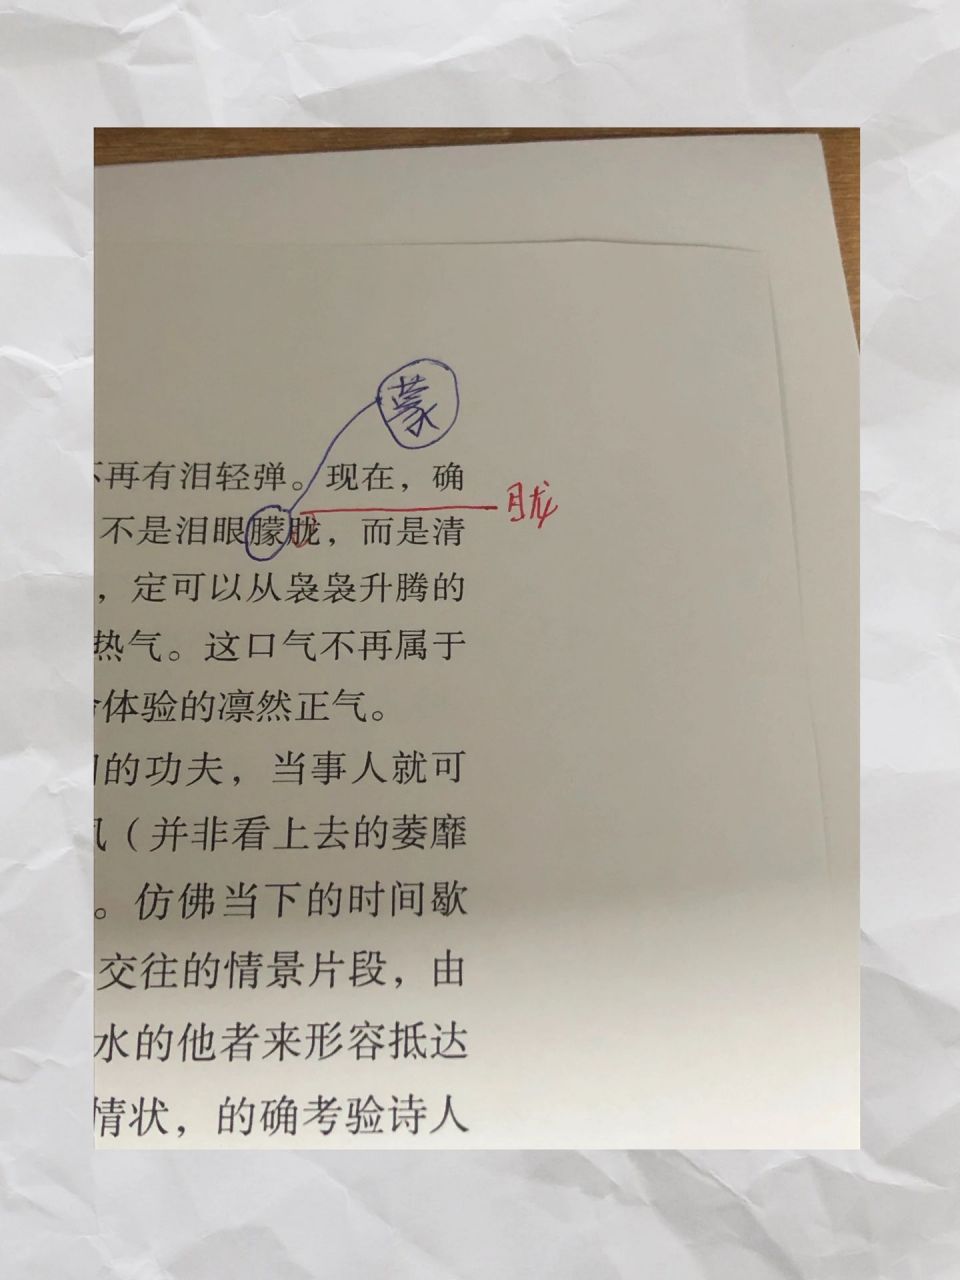 蒙
不再有泪轻弹。现在，确
胧
不是泪眼朦胧，而是清
，定可以从袅袅升腾的
热气。这口气不再属于
体验的凛然正气。
的功夫，当事人就可
（并非看上去的萎靡
。仿佛当下的时间歇
交往的情景片段，由
水的他者来形容抵达
情状，的确考验诗人